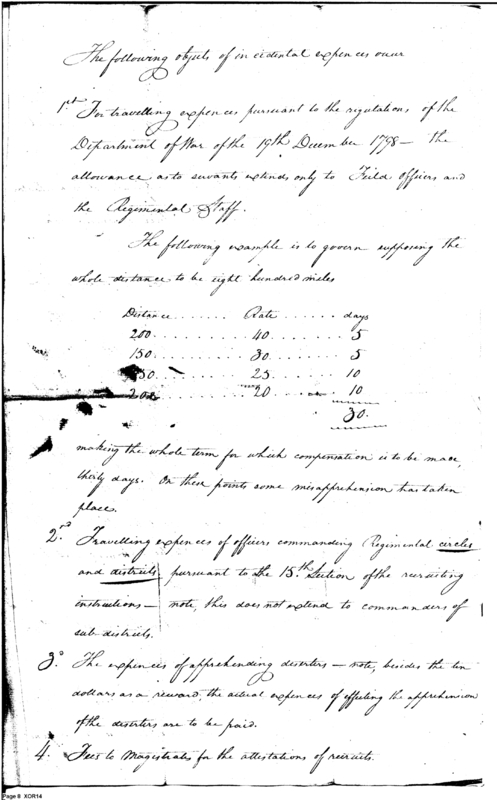 The following objects of incidental expences occur
1st For travelling expences pursuant to the regulations of the
Department of War of the 19th December 1798 — the
allowance as to servants extends only to Feild officers and
the Regimental Staff.
The following example is to govern supposing the
whole distance to be eight hundred miles
Distance ...... Rate ...... days
200 ......... 40 ...... 5
150 ......... 30 ...... 5
250 ......... 25 ...... 10
200 ......... 20 ...... 10
30.
making the whole term for which compensation is to be made,
thirty days. On these points some misapprehension has taken
place.
2d Travelling expences of officers commanding Regimental circles
and districts pursuant to the 15th Section of the recruiting
instructions — note, this does not extend to commanders of
sub-districts.
3d The expences of apprehending deserters — note, besides the ten
dollars as a reward, the actual expences of effecting the apprehension
of the deserters are to be paid.
4. Fees to Magistrates for the attestations of recruits.
Page 8 XOR14